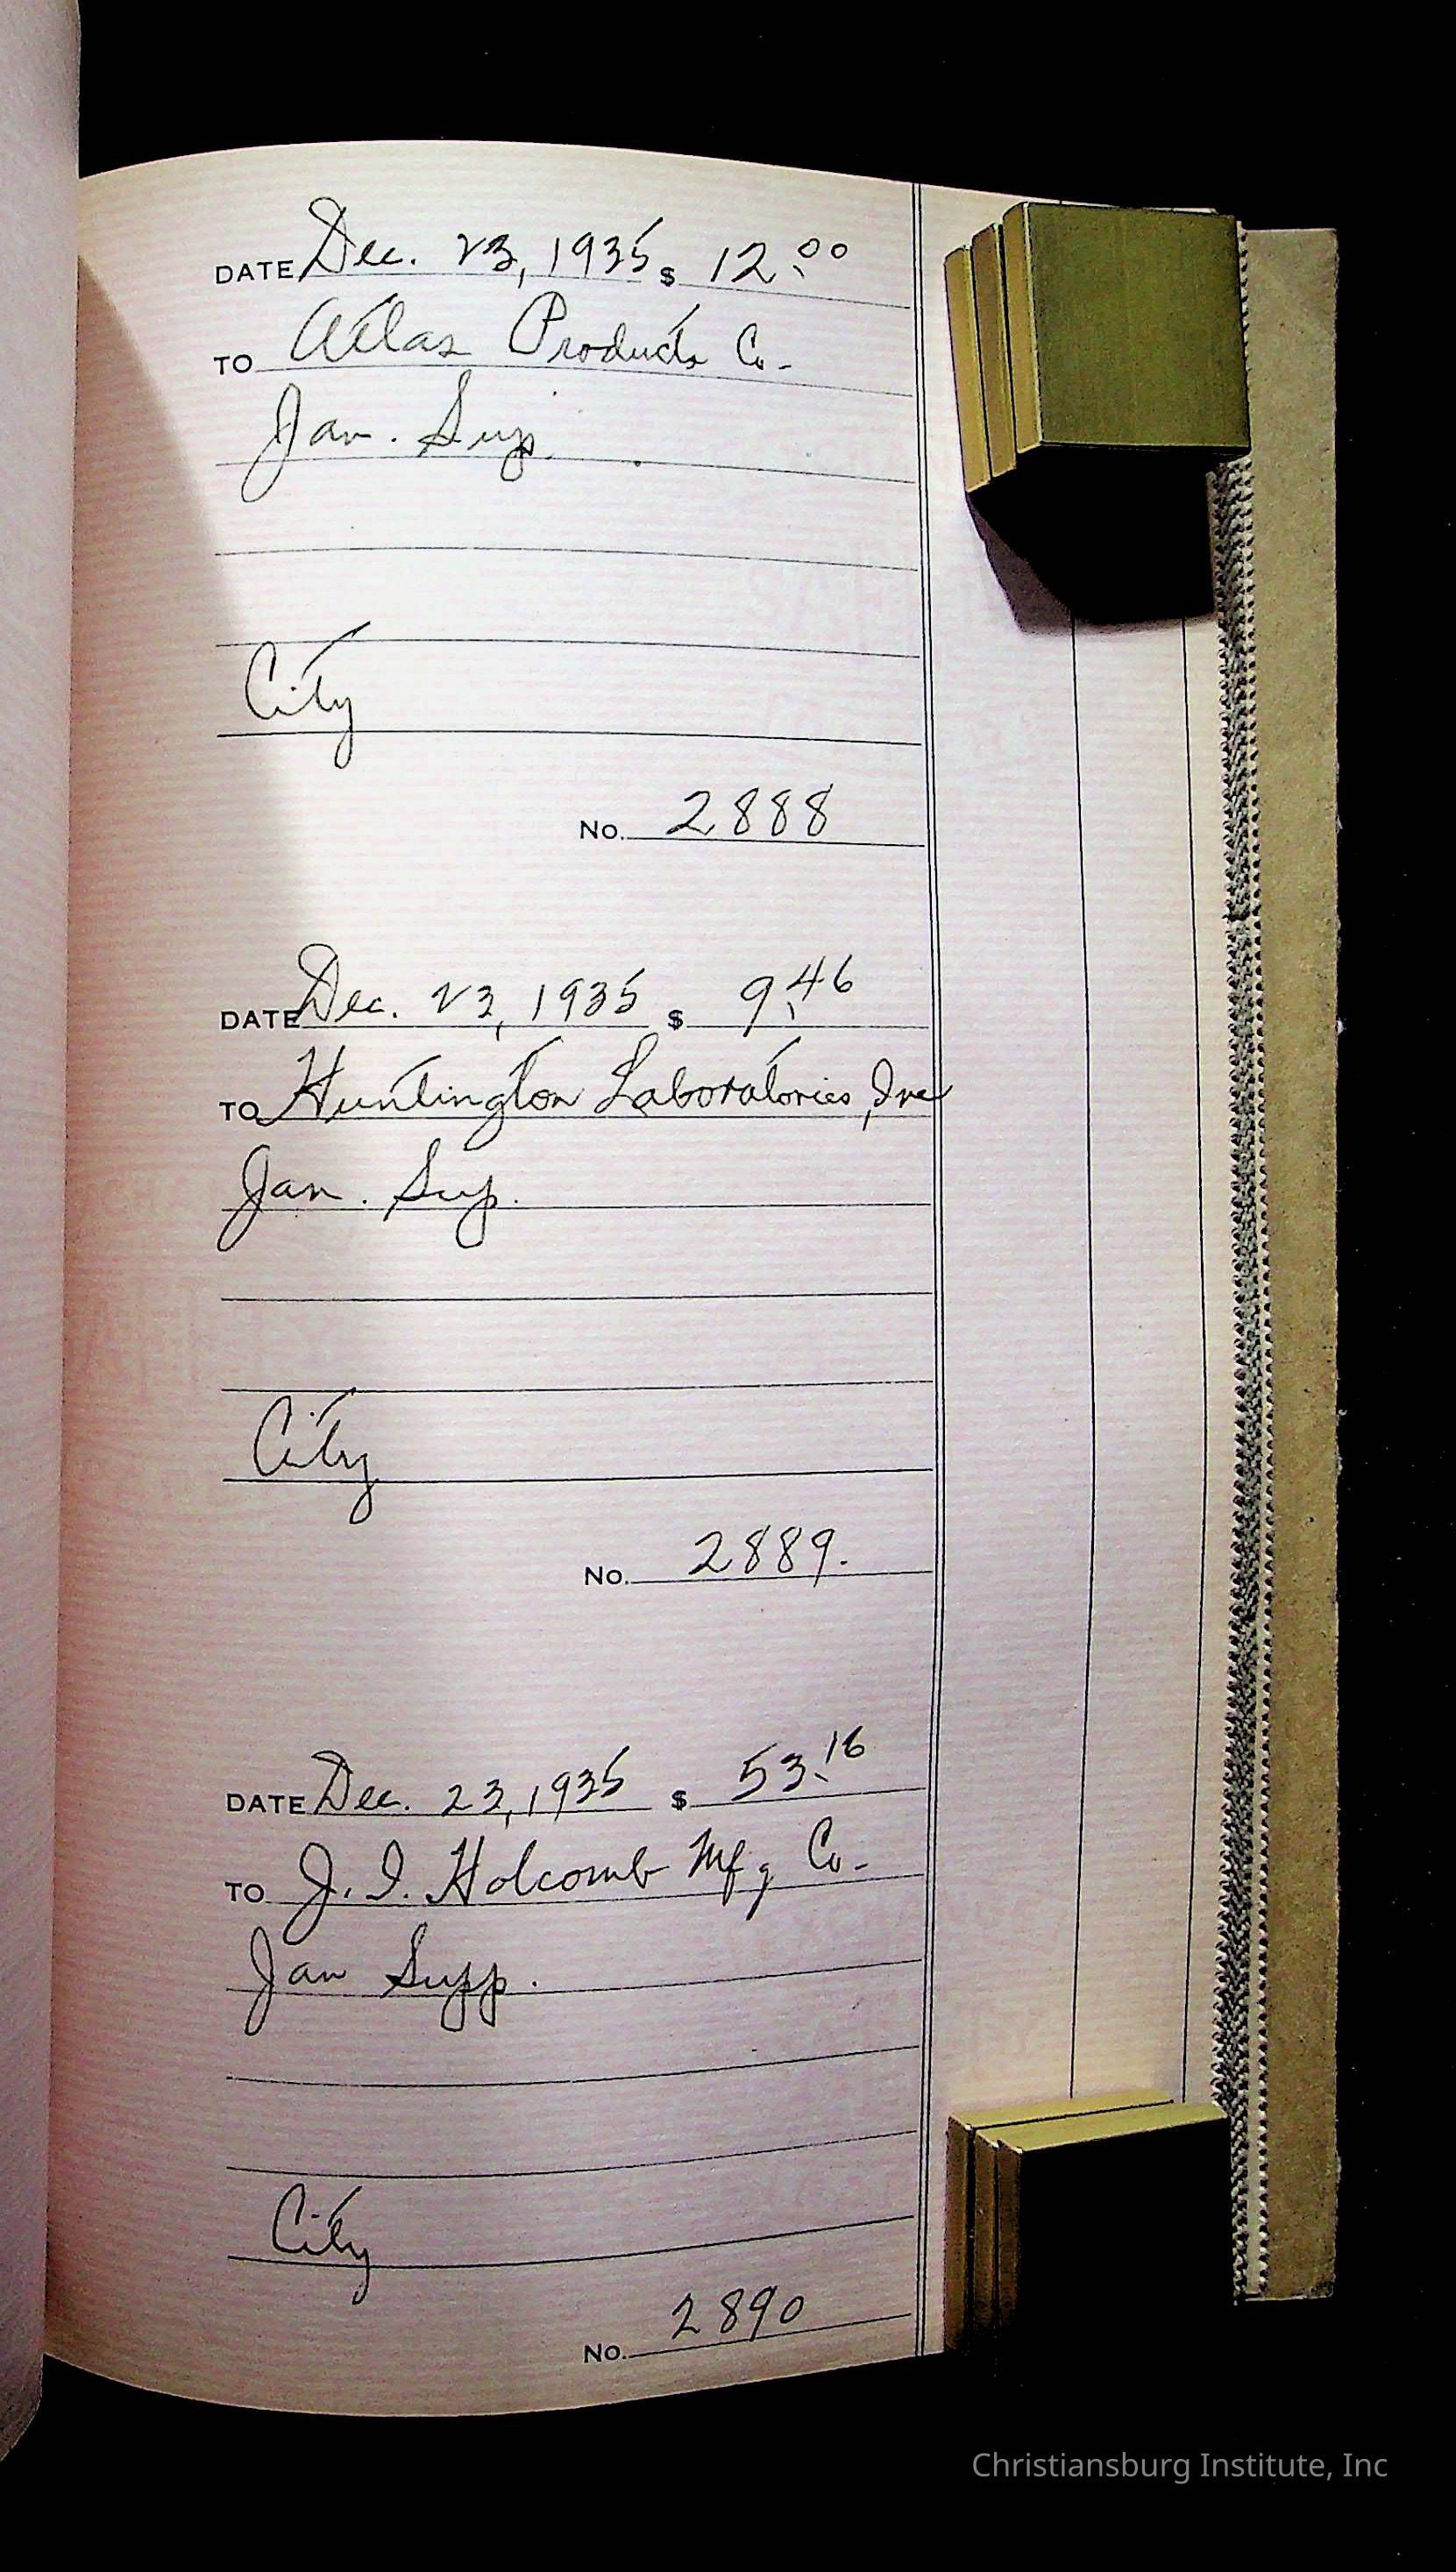 DATE Dec. 23, 1935 $ 12.00
TO Atlas Products Co.
Jan. Sup.
City
No. 2888
DATE Dec. 23, 1935 $ 9.46
TO Huntington Laboratories, Inc
Jan. Sup.
City
No. 2889.
DATE Dec. 23, 1935 $ 53.16
TO J. I. Holcomb Mfg Co.
Jan Supp.
City
No. 2890
Christiansburg Institute, Inc